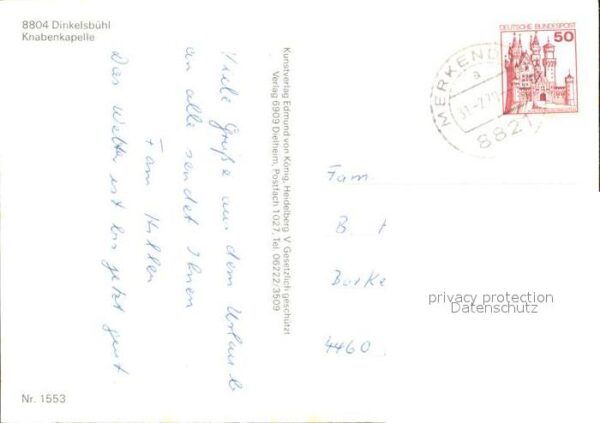 8804 Dinkelsbühl
Knabenkapelle
Viele Grüße aus dem Urlaub
an alle sendet Ihnen
Fam
Das Wetter ist bis jetzt gut.
Kunstverlag Edmund von König, Heidelberg V Gesetzlich geschützt
Verlag 6909 Dielheim, Postfach 1027, Tel. 06222/3509
DEUTSCHE BUNDESPOST
50
MERKEND
a
8821
Fam.
B.
4460
privacy protection
Datenschutz
Nr. 1553